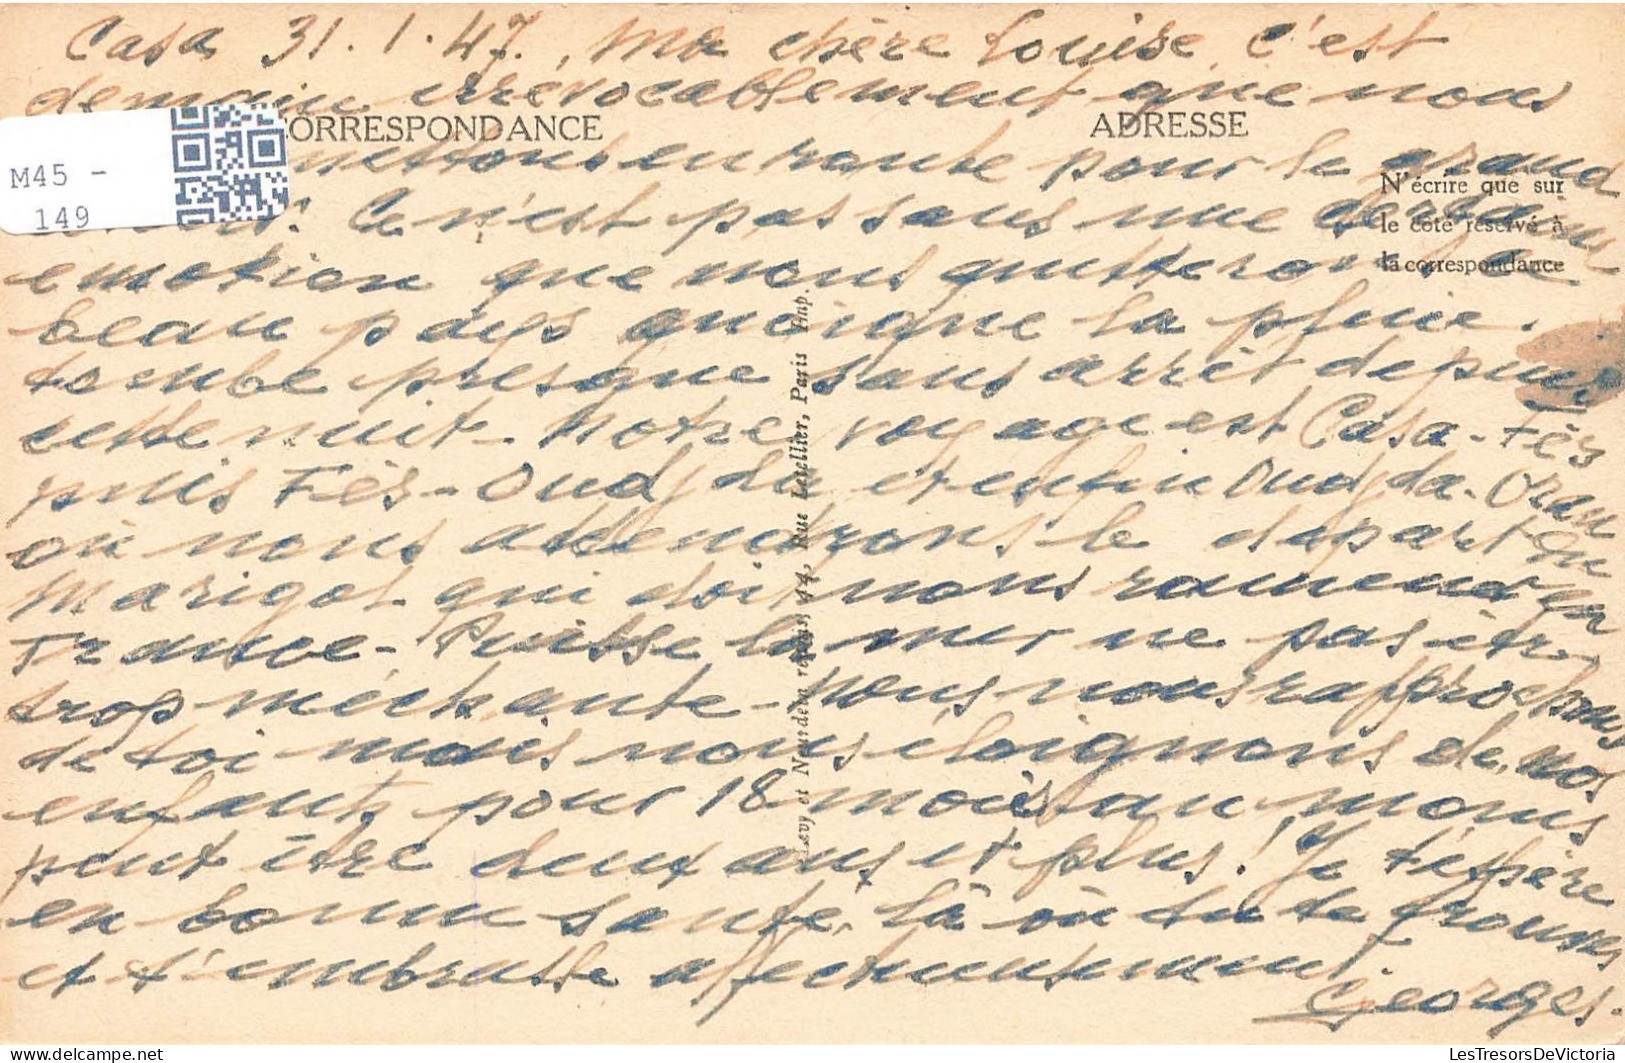 Casa 31.1.47. Ma chère Louise, c'est
demain irrévocablement que nous
CORRESPONDANCE
ADRESSE
mettrons en route pour le grand
N'écrire que sur
le côté réservé à
la correspondance
M45 -
149
Ce n'est pas sans une certaine
émotion que nous quitterons ce
beau pays quoique la pluie
tombe presque sans arrêt depuis
cette nuit. Notre voyage est Casa-Fès
puis Fès-Oudjda et enfin Oudjda-Oran
où nous attendrons le départ du
Marigot qui doit nous ramener en
France. Puisse la mer ne pas être
trop méchante. Nous nous rapprochons
de toi mais nous éloignons de nos
enfants pour 18 mois au moins
peut être deux ans et plus! Je t'espère
en bonne santé, là où tu te trouves
et t'embrasse affectueusement.
Georges.
Levy et Neurdein réunis, 44, Rue Letellier, Paris Imp.
LesTresorsDeVictoria
www.delcampe.net